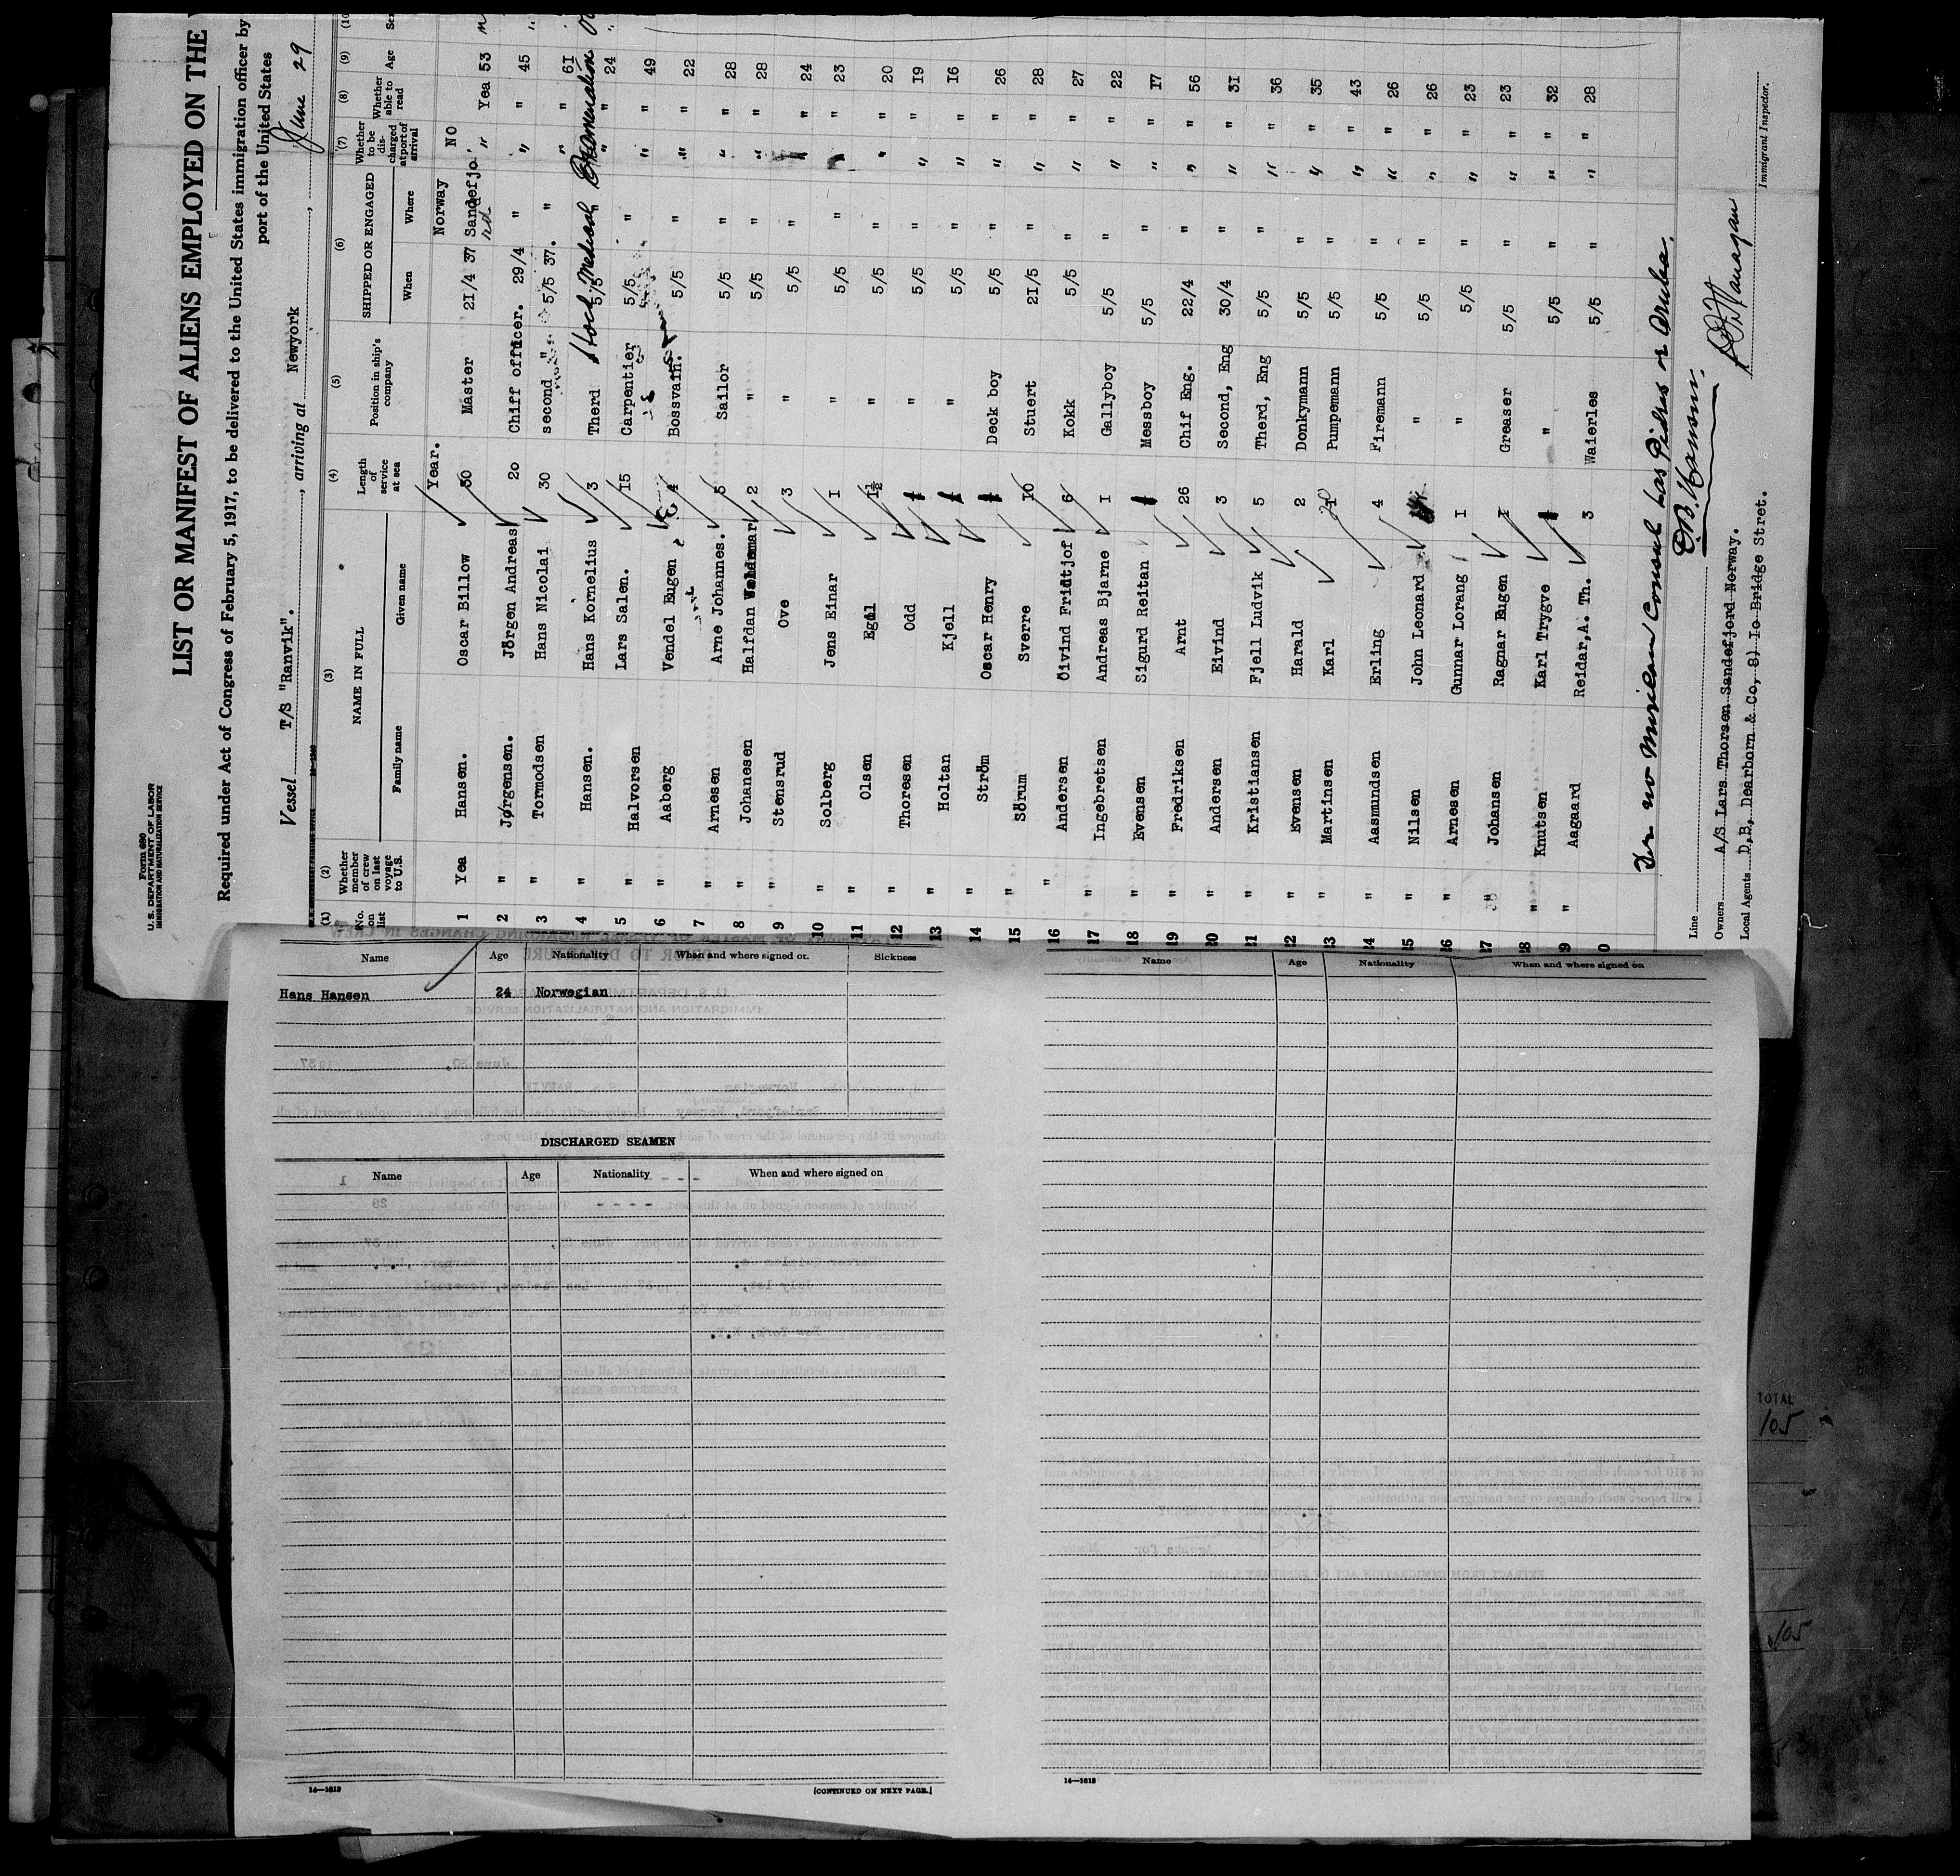 Form 689
U. S. DEPARTMENT OF LABOR
IMMIGRATION AND NATURALIZATION SERVICE
LIST OR MANIFEST OF ALIENS EMPLOYED ON THE
Required under Act of Congress of February 5, 1917, to be delivered to the United States immigration officer by
port of the United States
Vessel T/S "Ranvik"., arriving at Newyork, June 29
(1) (2) (3) (4) (5) (6) (7) (8) (9) (10
No. on list Whether member of crew on last voyage to U.S. NAME IN FULL Family name Given name Length of service at sea Position in ship's company SHIPPED OR ENGAGED When Where Whether to be discharged at port of arrival Whether able to read Age
Year. Norway NO
1 Yea Hansen. Oscar Billow 30 Master 21/4 37 Sandefjo rd " Yea 53
2 " Jørgensen. Jörgen Andreas 20 Chiff officer. 29/4 " " " 45
3 " Tormodsen Hans Nicolai 30 second " 5/5 37. " " " 61
4 " Hansen. Hans Kornelius 3 Therd 5/5 " " " 24
Medical Examination
5 " Halvorsen Lars Salen. 15 Carpentier 5/5 " " " 49
6 " Aaberg Vendel Eugen 4 Bossvain. 5/5 " " " 22
7 " Arnesen Arne Johannes. 5 Sailor 5/5 " " " 28
8 " Johanesen Halfdan 2 " 5/5 " " " 28
9 " Stensrud Ove 3 " 5/5 " " 24
10 " Solberg Jens Einar I " 5/5 " " 23
11 " Olsen Egil 1½ " 5/5 " " " 20
12 " Thoresen Odd " 5/5 " " " 19
13 " Holtan Kjell " 5/5 " " " 16
14 " Ström Oscar Henry Deck boy 5/5 " " " 26
15 " Sörum Sverre 10 Stuert 21/5 " " " 28
16 " Andersen Öivind Fridtjof 6 Kokk 5/5 " " " 27
17 " Ingebretsen Andreas Bjarne I Gallyboy 5/5 " " " 22
18 " Evensen Sigurd Reitan Messboy 5/5 " " " 17
19 " Fredriksen Arnt 26 Chif Eng. 22/4 " " " 56
20 " Andersen Eivind 3 Second, Eng 30/4 " " " 31
21 " Kristiansen Fjell Ludvik 5 Therd, Eng 5/5 " " " 36
22 " Evensen Harald 2 Donkymann 5/5 " " " 35
23 " Martinsen Karl Pumpemann 5/5 " " " 43
24 " Aasmundsen Erling 4 Firemann 5/5 " " " 26
25 " Nilsen John Leonard " 5/5 " " " 26
26 " Arnesen Gunnar Lorang I " 5/5 " " " 23
27 " Johansen Ragnar Eugen I Greaser 5/5 " " " 23
28 " Knutsen Karl Trygve " 5/5 " " " 32
29 " Aagaard Reidar,A. Th. 3 Waierles 5/5 " " " 28
no Consul Las Piedras or Aruba.
O.B. Hansen.
Line
Owners A/S Lars Thorsen Sandefjord Norway.
Local Agents D,B, Dearborn & Co, 8) Io Bridge Stret.
Immigrant Inspector.
Name Age Nationality When and where signed on. Sickness
Hans Hansen 24 Norwegian
DISCHARGED SEAMEN
Name Age Nationality When and where signed on
- - - -
- - - -
14—1613
[CONTINUED ON NEXT PAGE.]
Name Age Nationality When and where signed on
14—1613
TOTAL
105
105